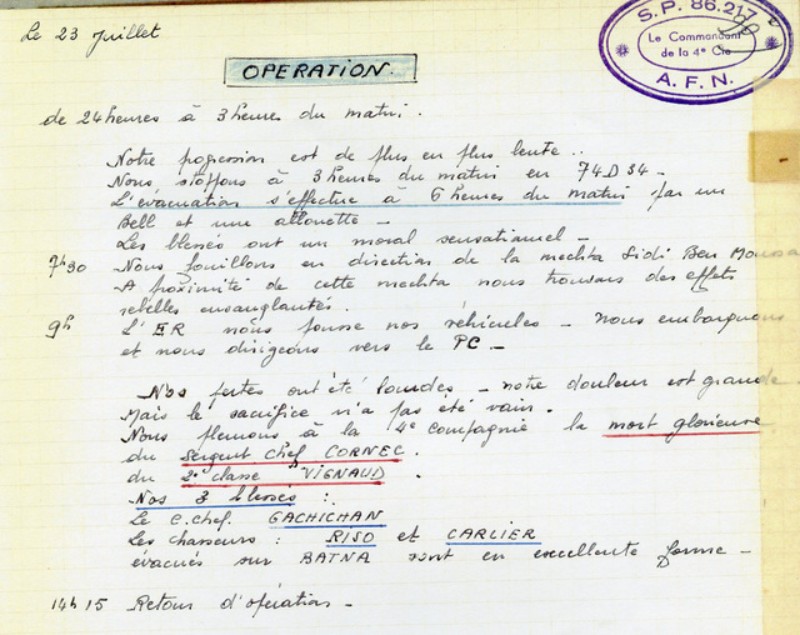 Le 23 Juillet
S.P. 86.217
Le Commandant
de la 4e Cie
A.F.N.
OPERATION.
de 24 heures à 3 heures du matin.
Notre pogression est de plus en plus lente..
Nous stoppons à 3 heures du matin en 74 D 34 -
L'évacuation s'effectue à 6 heures du matin par un
Bell et une allouette -
Les blessés ont un moral sensationnel -
7h30 Nous fouillons en direction de la mechta Sidi Ben Moussa
A proximité de cette mechta nous trouvons des effets
rebelles ensanglantés.
9h L'ER nous pousse nos véhicules - nous embarquons
et nous dirigeons vers le PC -
Nos pertes ont été lourdes - notre douleur est grande.
Mais le sacrifice n'a pas été vain.
Nous pleurons à la 4e compagnie la mort glorieuse
du Sergent Chef CORNEC.
du 2e classe VIGNAUD.
Nos 3 blessés :
Le C.Chef. GACHICHAN
Les chasseurs : RISO et CARLIER
évacués sur BATNA sont en excellente forme -
14h15 Retour d'opération -